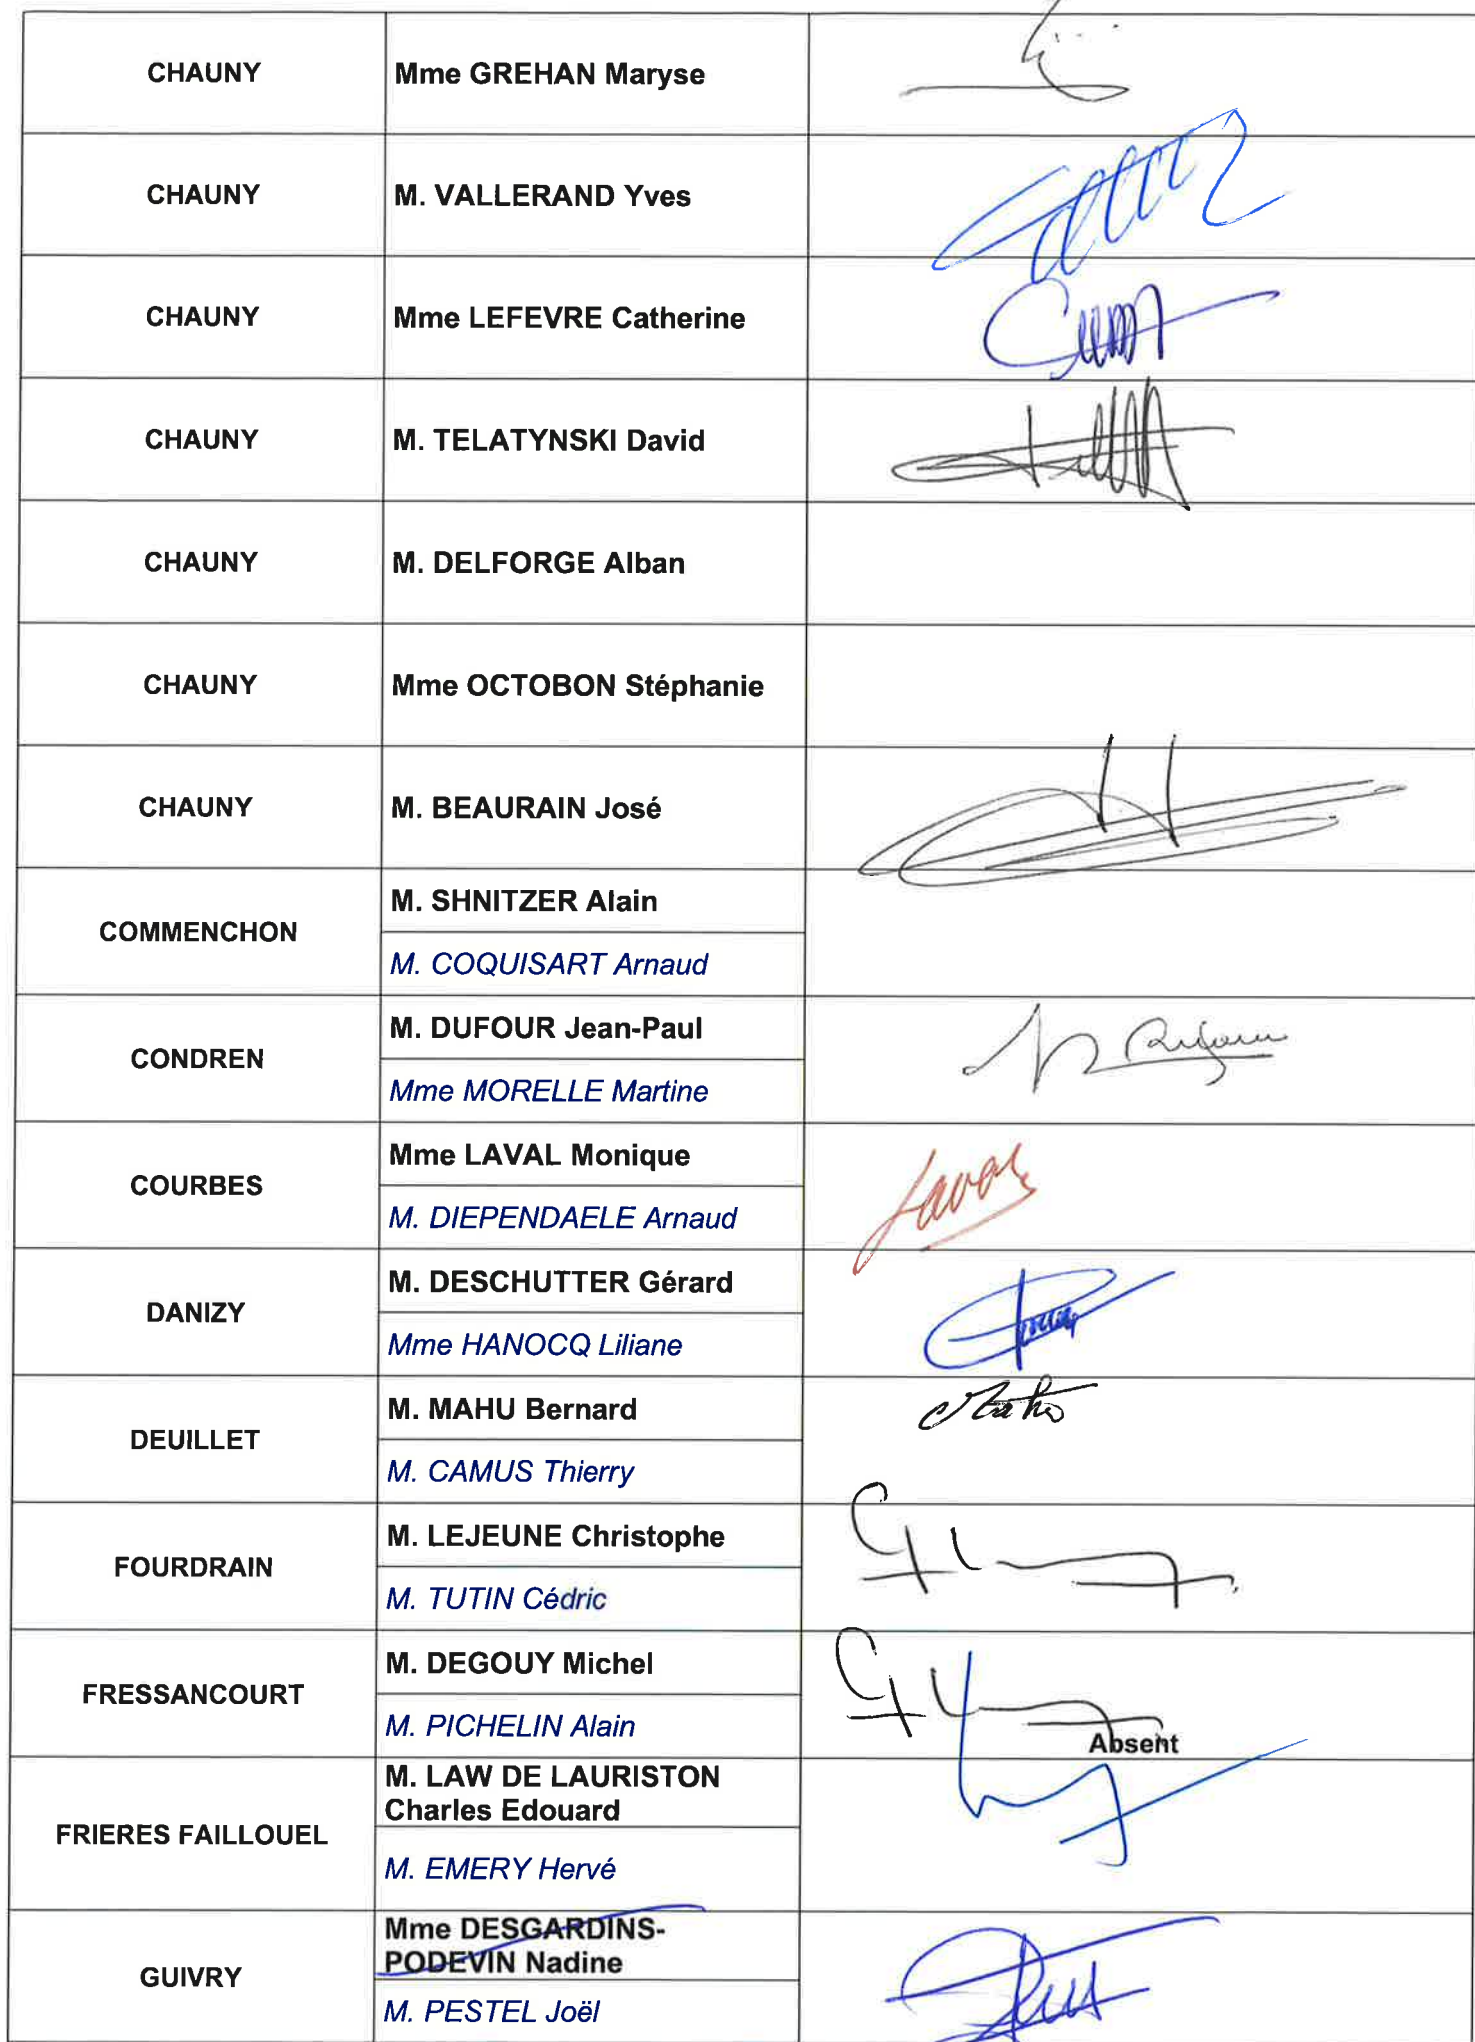 CHAUNY
Mme GREHAN Maryse
CHAUNY
M. VALLERAND Yves
CHAUNY
Mme LEFEVRE Catherine
CHAUNY
M. TELATYNSKI David
CHAUNY
M. DELFORGE Alban
CHAUNY
Mme OCTOBON Stéphanie
CHAUNY
M. BEAURAIN José
COMMENCHON
M. SHNITZER Alain
M. COQUISART Arnaud
CONDREN
M. DUFOUR Jean-Paul
Mme MORELLE Martine
COURBES
Mme LAVAL Monique
Laval
M. DIEPENDAELE Arnaud
DANIZY
M. DESCHUTTER Gérard
Mme HANOCQ Liliane
DEUILLET
M. MAHU Bernard
Mahu
M. CAMUS Thierry
FOURDRAIN
M. LEJEUNE Christophe
M. TUTIN Cédric
FRESSANCOURT
M. DEGOUY Michel
M. PICHELIN Alain
Absent
FRIERES FAILLOUEL
M. LAW DE LAURISTON
Charles Edouard
M. EMERY Hervé
GUIVRY
Mme DESGARDINS-
PODEVIN Nadine
M. PESTEL Joël